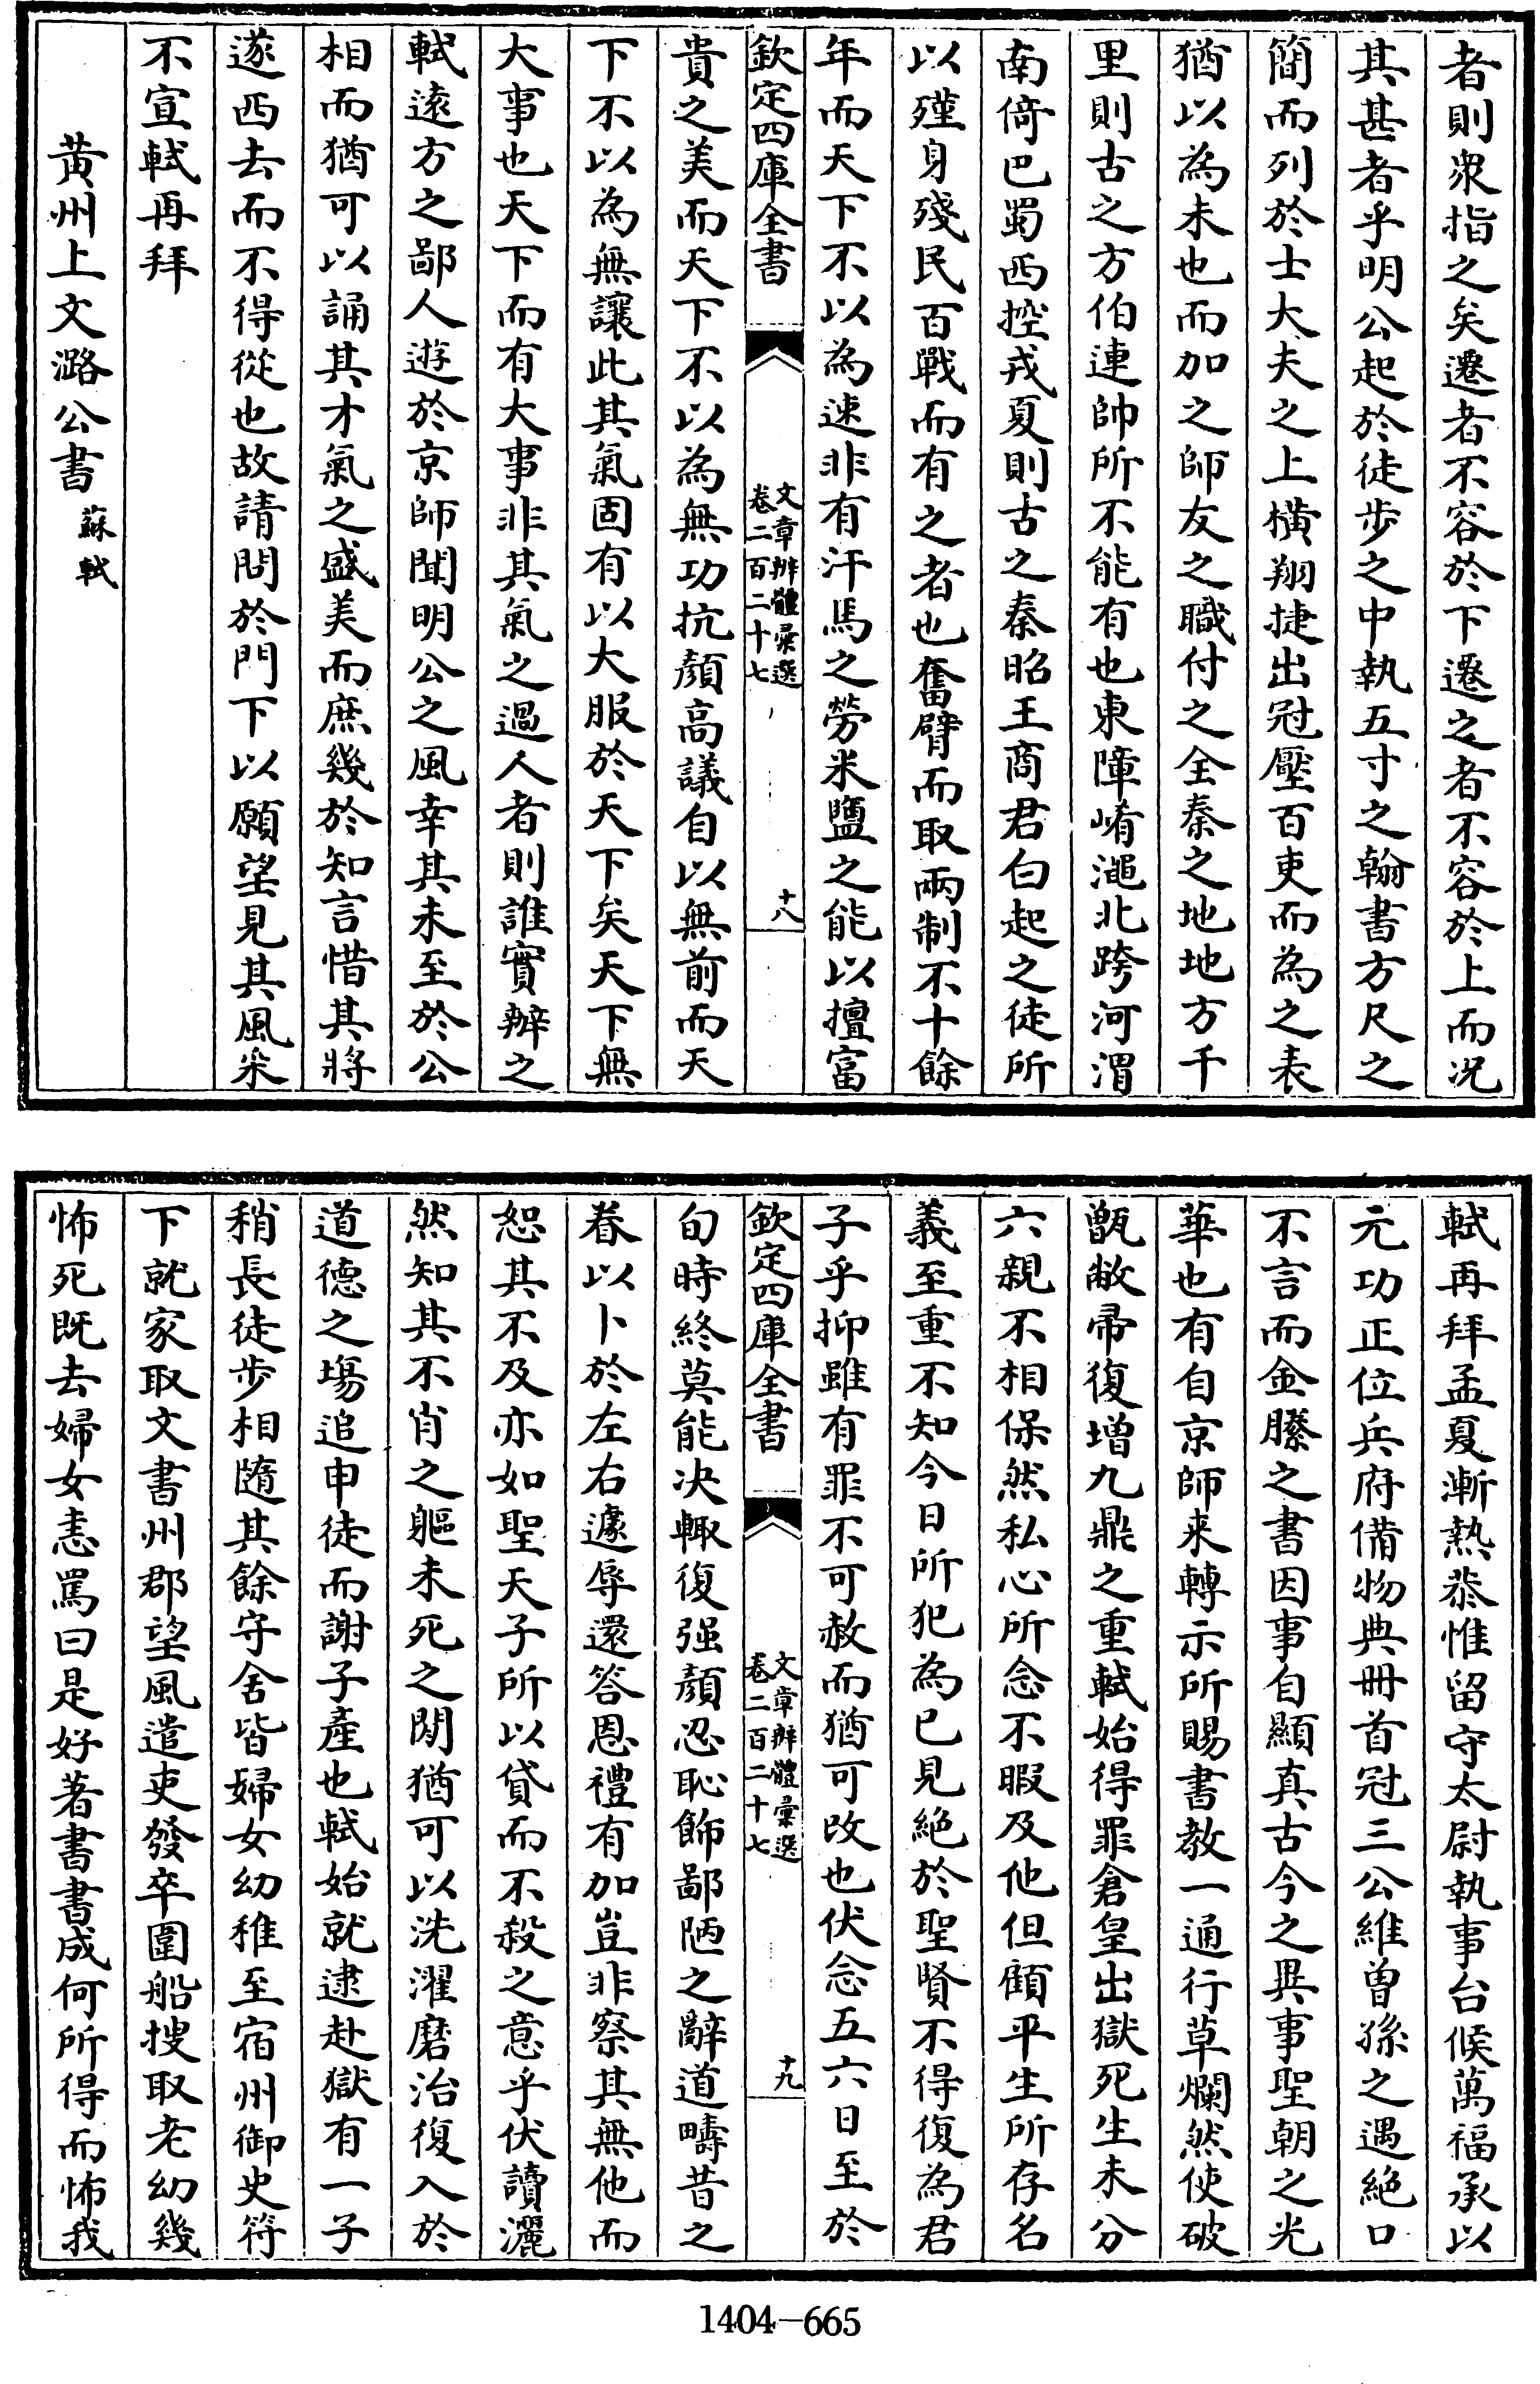 者則衆指之矣遷者不容於下遷之者不容於上而况
其甚者乎明公起於徒步之中執五寸之翰書方尺之
簡而列於士大夫之上横翔捷出冠壓百吏而為之表
猶以為未也而加之師友之職付之全秦之地地方千
里則古之方伯連帥所不能有也東障崤澠北跨河渭
南倚巴蜀西控戎夏則古之秦昭王商君白起之徒所
以殣身殘民百戰而有之者也奮臂而取兩制不十餘
年而天下不以為速非有汗馬之勞米鹽之能以擅富
欽定四庫全書
文章辨體彙選
卷二百二十七
十八
貴之美而天下不以為無功抗顔高議自以無前而天
下不以為無讓此其氣固有以大服於天下矣天下無
大事也天下而有大事非其氣之過人者則誰實辦之
軾遠方之鄙人遊於京師聞明公之風幸其未至於公
相而猶可以誦其才氣之盛美而庶幾於知言惜其將
遂西去而不得從也故請問於門下以願望見其風采
不宣軾再拜
黄州上文潞公書 蘇軾
軾再拜孟夏漸熱恭惟留守太尉執事台候萬福承以
元功正位兵府備物典冊首冠三公維曾孫之遇絶口
不言而金縢之書因事自顯真古今之異事聖朝之光
華也有自京師来轉示所賜書教一通行草爛然使破
甑敝帚復增九鼎之重軾始得罪倉皇出獄死生未分
六親不相保然私心所念不暇及他但顧平生所存名
義至重不知今日所犯為已見絶於聖賢不得復為君
子乎抑雖有罪不可赦而猶可改也伏念五六日至於
欽定四庫全書
文章辨體彙選
卷二百二十七
十九
旬時終莫能决輙復强顔忍恥飾鄙陋之辭道疇昔之
眷以卜於左右遽辱還答恩禮有加豈非察其無他而
恕其不及亦如聖天子所以貸而不殺之意乎伏讀灑
然知其不肖之軀未死之間猶可以洗濯磨治復入於
道德之塲追申徒而謝子產也軾始就逮赴獄有一子
稍長徒步相隨其餘守舍皆婦女幼稚至宿州御史符
下就家取文書州郡望風遣吏發卒圍船搜取老幼幾
怖死既去婦女恚罵曰是好著書書成何所得而怖我
1404—665